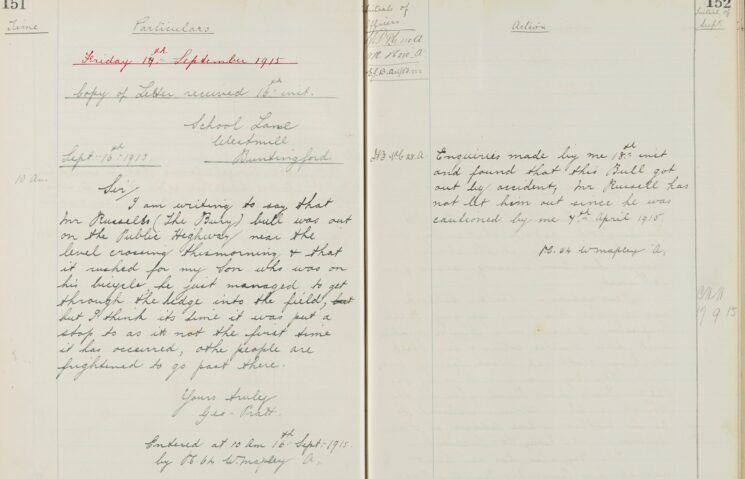 151
Time
Particulars
Friday 17th September 1915
Copy of Letter received 16th inst.
School Lane
Westmill
Sept 16th 1915
Buntingford
10 am
Sir
I am writing to say that
Mr Russells (The Bury) bull was out
on the Public Highway near the
level crossing this morning & that
it rushed for my Son who was on
his bicycle he just managed to get
through the hedge into the field,
but I think its time it was put a
stop to as its not the first time
it has occurred, othe people are
frightened to go past there.
Yours truly
Geo Pratt.
Entered at 10 Am 16th Sept 1915
by Pc 64 W. Mapley A.
Initials of
Officers
152
Action
Initial of
Supt.
Enquiries made by me 18th inst
and found that this Bull got
out by accident, Mr Russell has
not let him out since he was
cautioned by me 7th April 1915
Pc. 64 W. Mapley A.
17 9 15